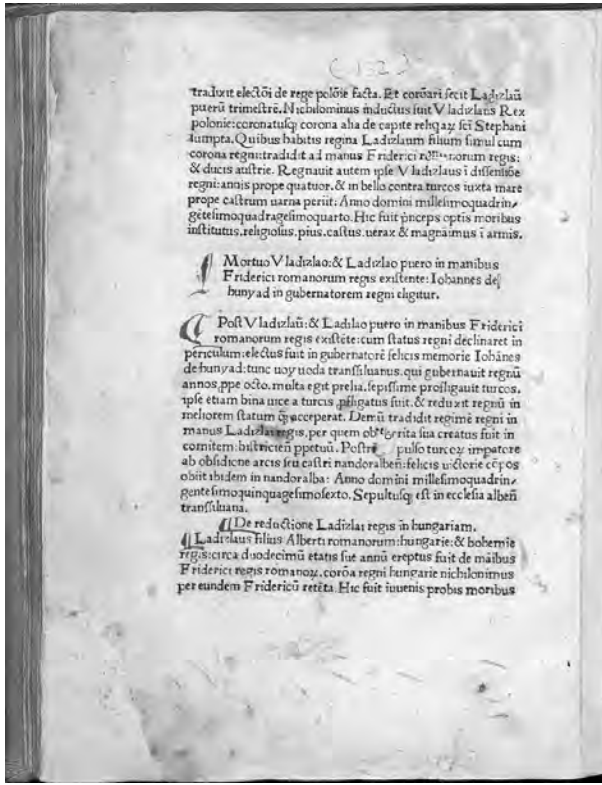 (132)
traduxit electōi de rege polōie facta. Et corōari fecit Ladizlaū
puerū trimestrē. Nichilominus inductus fuit Vladizlaus Rex
polonie: coronatusqꝫ corona alia de capite reliqaꝝ sci Stephani
sumpta. Quibus habitis regina Ladizlaum filium simul cum
corona regni: tradidit ad manus Friderici romanorum regis:
& ducis austrie. Regnauit autem ipse Vladizlaus ī dissensiōe
regni: annis prope quatuor. & in bello contra turcos iuxta mare
prope castrum uarna periit: Anno domini millesimoquadrin⸗
gētesimoquadragesimoquarto. Hic fuit pṅceps optis moribus
institutus. religiosus. pius. castus. uerax & magnaīmus ī armis.
Mortuo Vladizlao: & Ladizlao puero in manibus
Friderici romanorum regis existente: Iohannes de
hunyad in gubernatorem regni eligitur.
Post Vladizlaū: & Ladilao puero in manibus Friderici
romanorum regis existēte: cum status regni declinaret in
periculum: electus fuit in gubernatorē felicis memorie Iohānes
de hunyad: tunc uoyuoda transsiluanus. qui gubernauit regnū
annos ꝓpe octo. multa egit prelia. sepissime profligauit turcos.
ipse etiam bina uice a turcis ꝓfligatus fuit. & reduxit regnū in
meliorem statum q̄ꝫ acceperat. Demū tradidit regimē regni in
manus Ladizlai regis. per quem ob merita sua creatus fuit in
comitem: bistricieñ ꝑpetuū. Postre pulso turcoꝝ impatore
ab obsidione arcis seu castri nandoralbeñ: felicis uictorie cōpos
obiit ibidem in nandoralba: Anno domini millesimoquadrin⸗
gentesimoquinquagesimosexto. Sepultusqꝫ est in ecclesia albeñ
transsiluana.
¶ De reductione Ladizlai regis in hungariam.
¶ Ladizlaus filius Alberti romanorum: hungarie: & bohemie
regis: circa duodecimū etatis sue annū ereptus fuit de maibus
Friderici regis romanoꝝ. corōa regni hungarie nichilonimus
per eundem Fridericū retēta. Hic fuit iuuenis probis moribus